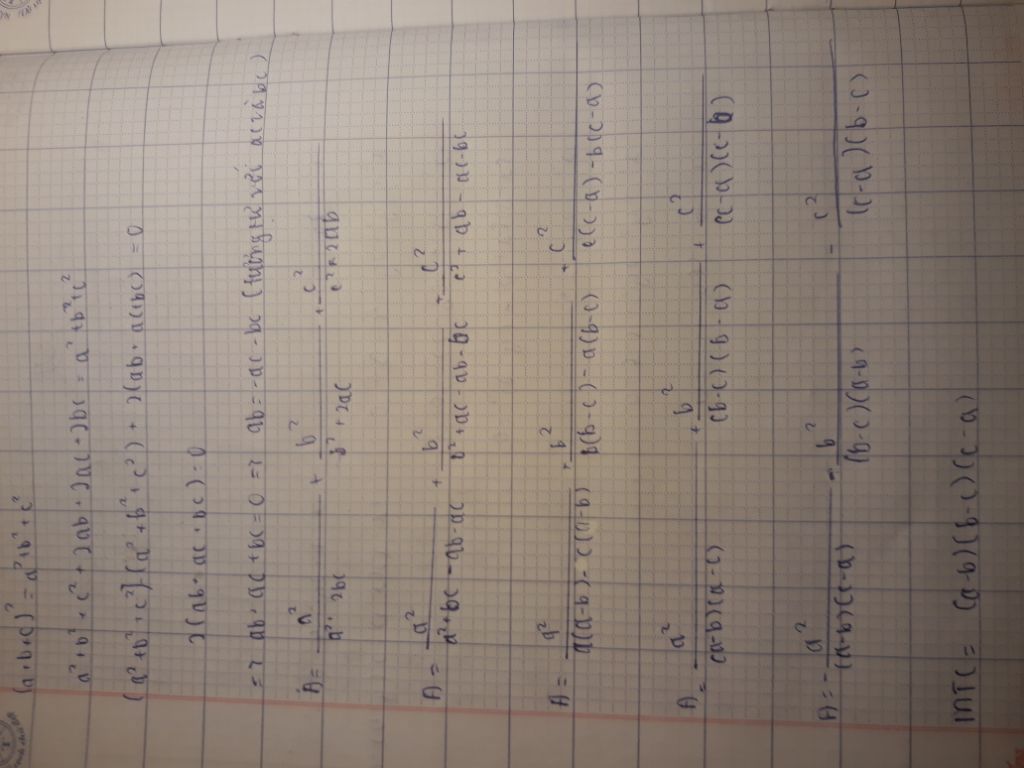 (a+b+c)² = a²+b²+c²
a²+b²+c²+2ab+2ac+2bc = a²+b²+c²
(a²+b²+c²)-(a²+b²+c²)+2(ab+ac+bc) = 0
2(ab+ac+bc)=0
=> ab+ac+bc=0 => ab=-ac-bc (tương tự với ac và bc)
A = a²/(a²+2bc) + b²/(b²+2ac) + c²/(c²+2ab)
A = a²/(a²+bc-ab-ac) + b²/(b²+ac-ab-bc) + c²/(c²+ab-ac-bc)
A = a²/(a(a-b)-c(a-b)) + b²/(b(b-c)-a(b-c)) + c²/(c(c-a)-b(c-a))
A = a²/((a-b)(a-c)) + b²/((b-c)(b-a)) + c²/((c-a)(c-b))
A = - a²/((a-b)(c-a)) - b²/((b-c)(a-b)) - c²/((c-a)(b-c))
MTC = (a-b)(b-c)(c-a)